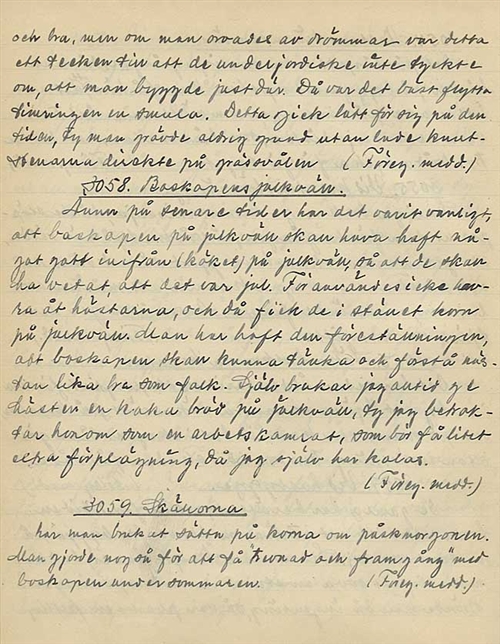 och bra, men om man oroades av drömmar var detta
ett tecken till att de underjordiske inte tyckte
om, att man byggde just där. Då var det bäst flytta
timringen en smula. Detta gick lätt för sig på den
tiden, ty man grävde aldrig grund utan lade knut-
stenarna direkte på gräsvålen (Föreg. medd.)
3058. Boskapens julkväll.
Ännu på senare tider har det varit vanligt,
att boskapen på julkväll skall hava haft nå-
got gott inifrån (köket) på julkväll, så att de skall
ha vetat, att det var jul. Förr användes icke hav-
ra åt hästarna, och då fick de i stället korn
på julkväll. Man har haft den föreställningen,
att boskapen skall kunna tänka och förstå näs-
tan lika bra som folk. Själv brukar jag alltid ge
hästen en kaka bröd på julkväll, ty jag betrak-
tar honom som en arbetskamrat, som bör få litet
extra förplägning, då jag själv har kalas.
(Föreg. medd.)
3059. Skällorna
har man brukat sätta på korna om påskmorgonen.
Man gjorde nog så för att få "trevnad och framgång" med
boskapen under sommaren. (Föreg. medd.)